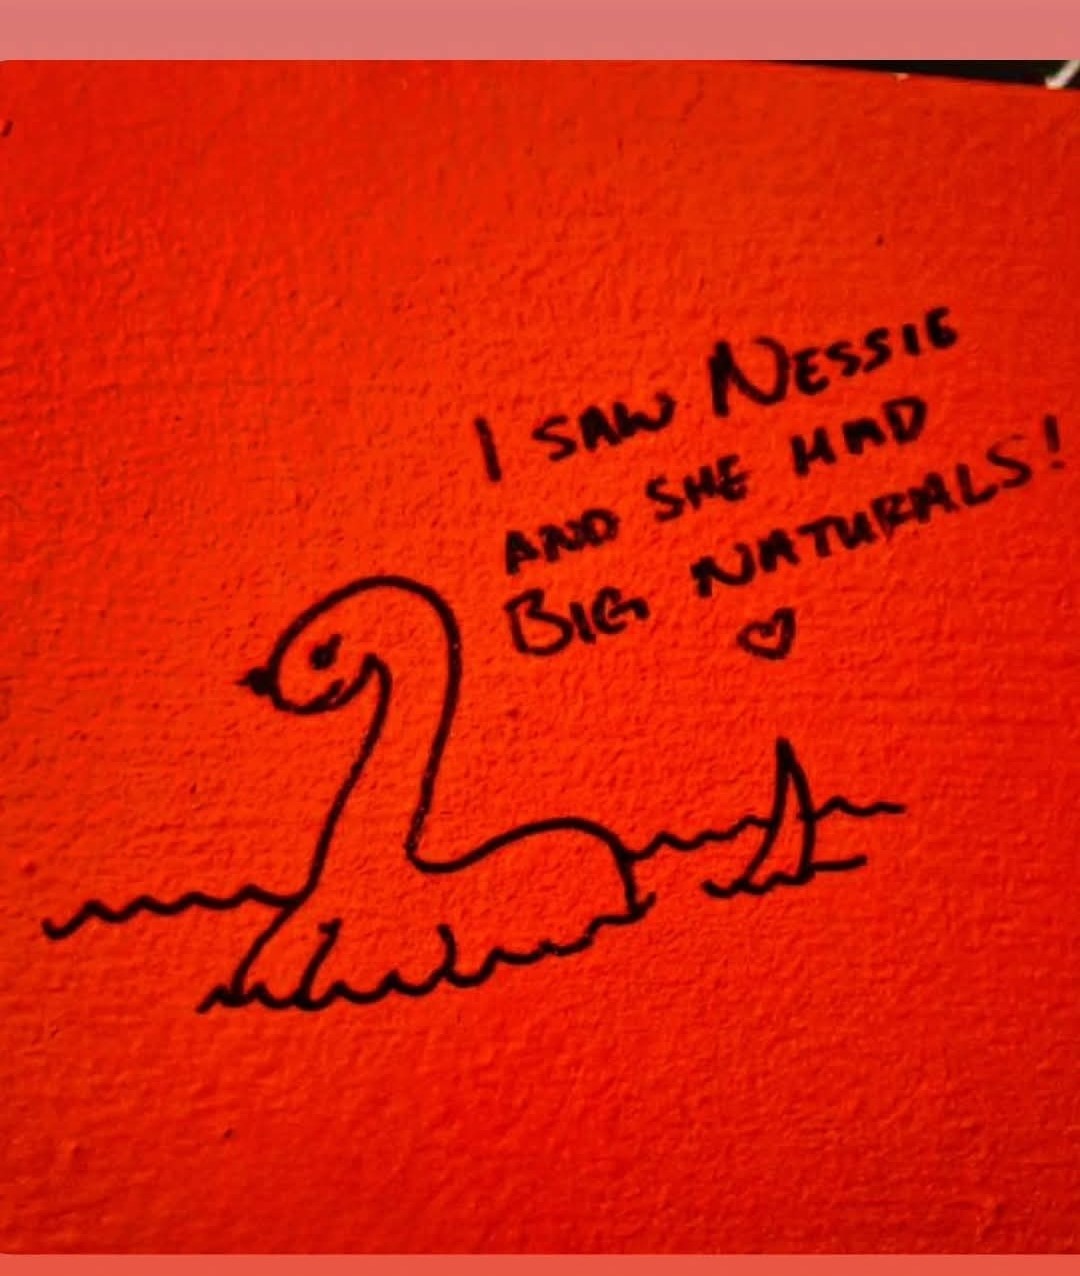 I SAW NESSIE
AND SHE HAD
BIG NATURALS!